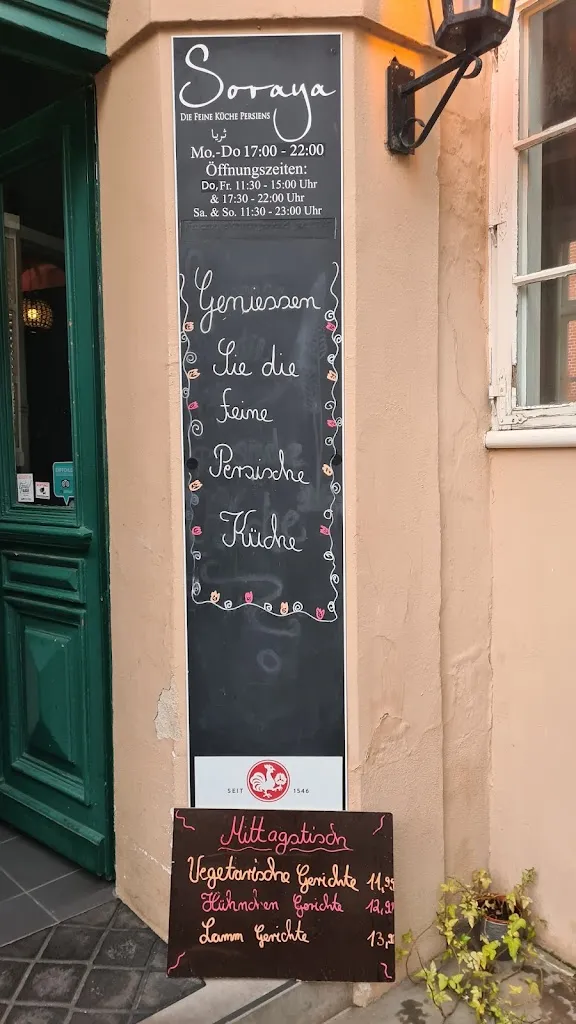 Soraya
DIE FEINE KÜCHE PERSIENS
ثریا
Mo.-Do 17:00 - 22:00
Öffnungszeiten:
Do, Fr. 11:30 - 15:00 Uhr
& 17:30 - 22:00 Uhr
Sa. & So. 11:30 - 23:00 Uhr
Geniessen
Sie die
feine
Persische
Küche
SEIT 1546
Mittagstisch
Vegetarische Gerichte 11,95
Hühnchen Gerichte 12,90
Lamm Gerichte 13,